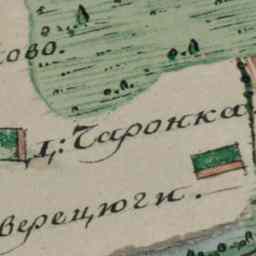 ково.
ц: Чаронка
верецюги.